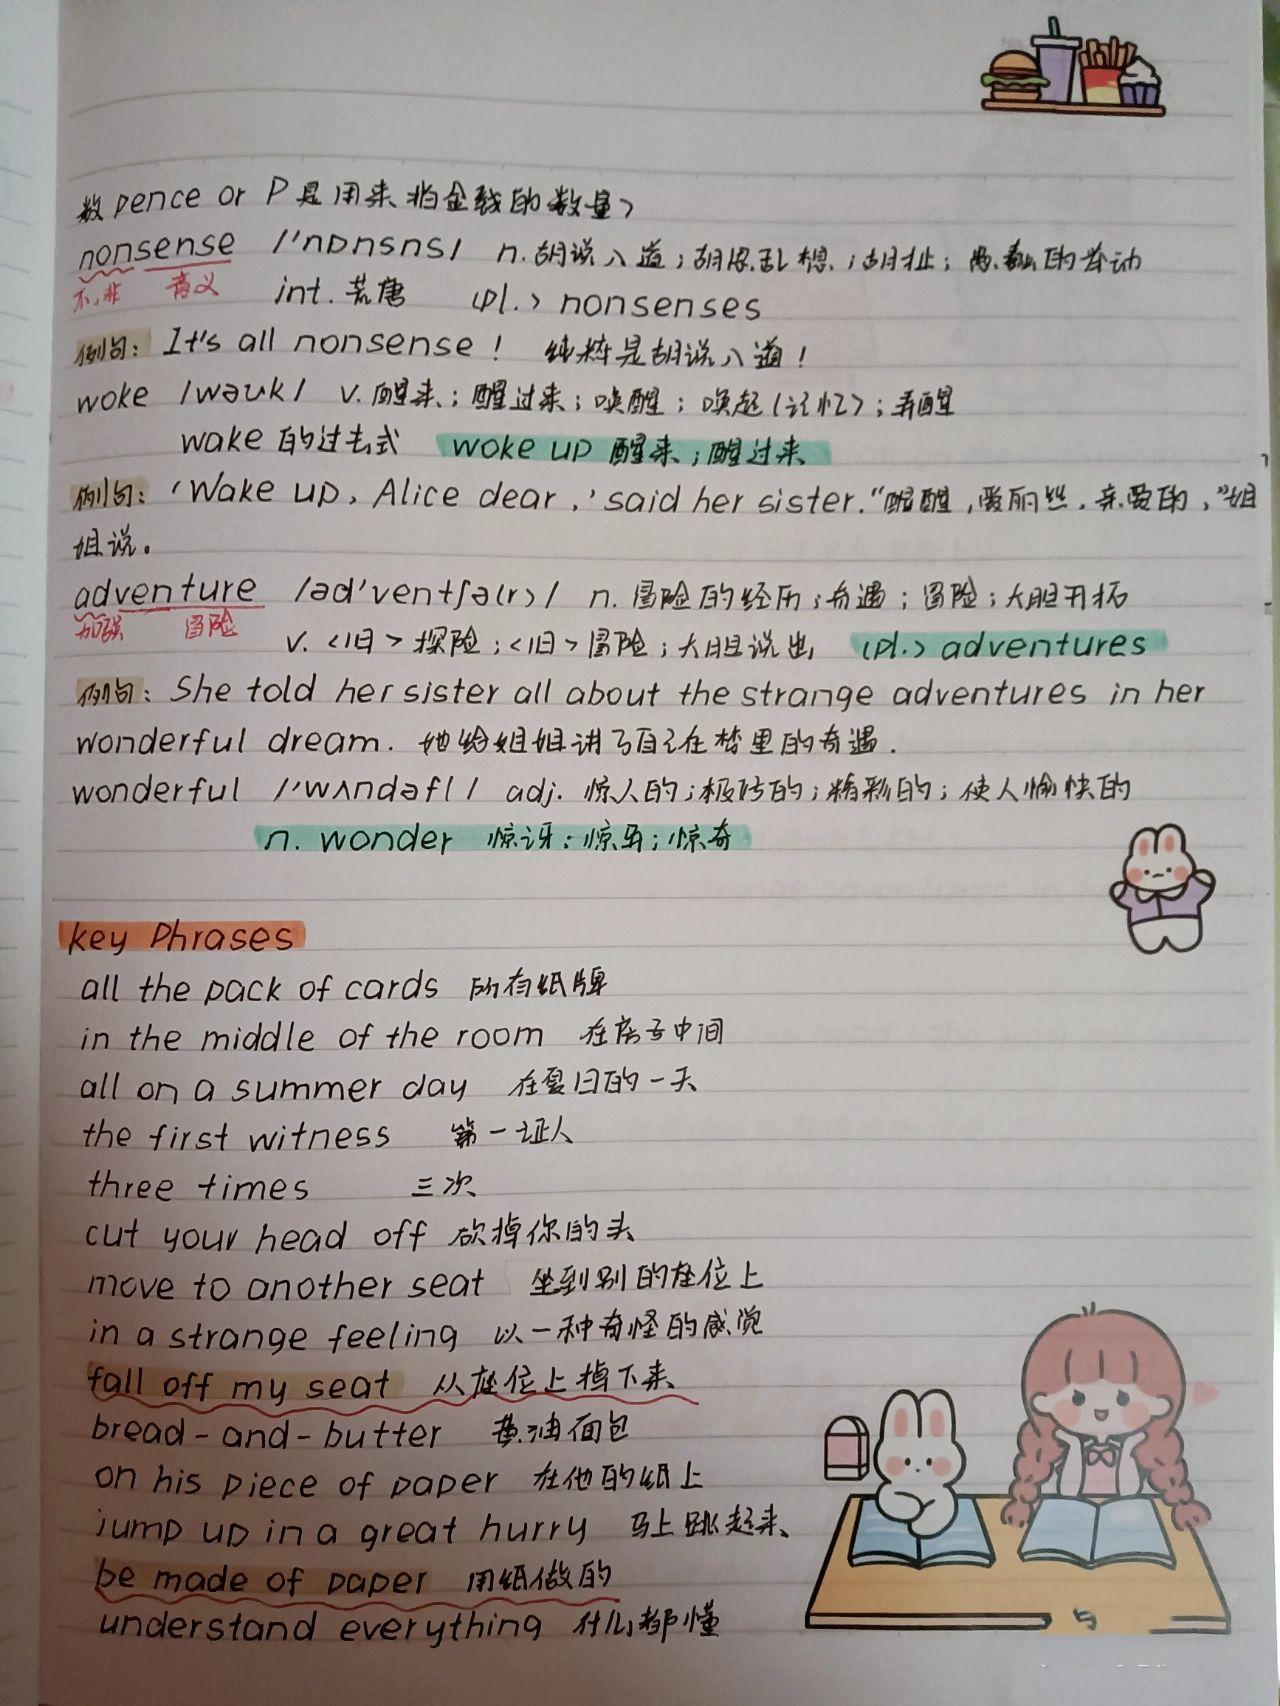 数pence or P是用来指金钱的数量)
nonsense /'nɒnsns/ n.胡说八道;胡思乱想;胡扯;愚蠢的举动
不,非 意义 int.荒唐 (pl.) nonsenses
例句: It's all nonsense! 纯粹是胡说八道!
woke /wəʊk/ v.醒来;醒过来;唤醒;唤起(记忆);弄醒
wake的过去式 woke up 醒来;醒过来
例句: 'Wake up, Alice dear,' said her sister."醒醒,爱丽丝,亲爱的,"姐
姐说。
adventure /əd'ventʃə(r)/ n.冒险的经历;奇遇;冒险;大胆开拓
加强 冒险 v.<旧>探险;<旧>冒险;大胆说出 (pl.) adventures
例句: She told her sister all about the strange adventures in her
wonderful dream. 她给姐姐讲了自己在梦里的奇遇.
wonderful /'wʌndəfl/ adj.惊人的;极好的;精彩的;使人愉快的
n. wonder 惊讶;惊异;惊奇
key Phrases
all the pack of cards 所有纸牌
in the middle of the room 在房子中间
all on a summer day 在夏日的一天
the first witness 第一证人
three times 三次
cut your head off 砍掉你的头
move to another seat 坐到别的座位上
in a strange feeling 以一种奇怪的感觉
fall off my seat 从座位上掉下来
bread-and-butter 黄油面包
on his piece of paper 在他的纸上
jump up in a great hurry 马上跳起来
be made of paper 用纸做的
understand everything 什么都懂